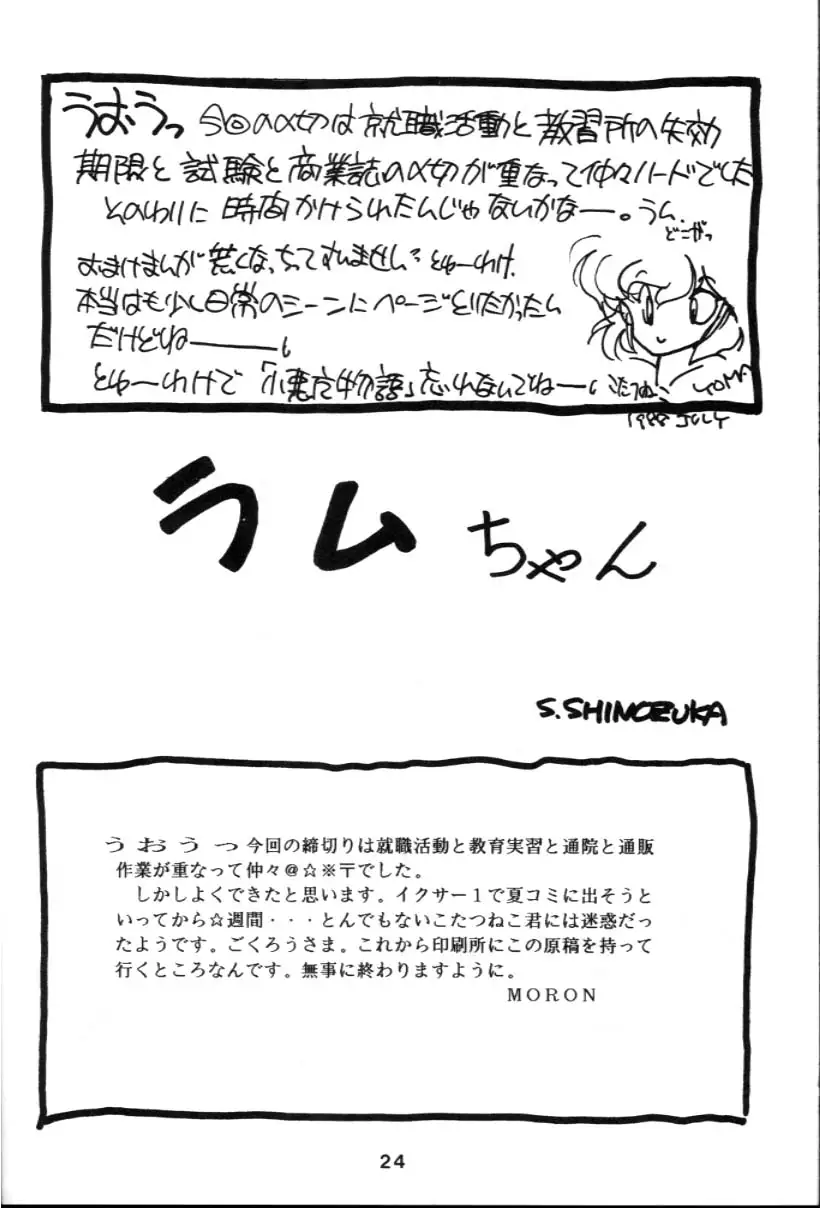 うおうっ 今回の〆切は就職活動と教習所の失効
期限と試験と商業誌の〆切が重なって仲々ハードでした
そのわりに時間かけられたんじゃないかなー。うム。
どこがっ
おまけまんが荒くなっちってすいません。とゆーわけ。
本当はも少し日常のシーンにページとりたかったん
だけどね――。
とゆーわけで「小悪魔物語」忘れないでねー。こたつねこ
YOMA
1988 JULY
ラムちゃん
S.SHINOZUKA
うおうっ今回の締切りは就職活動と教育実習と通院と通販
作業が重なって仲々@☆※〒でした。
しかしよくできたと思います。イクサー1で夏コミに出そうと
いってから☆週間・・・とんでもないこたつねこ君には迷惑だっ
たようです。ごくろうさま。これから印刷所にこの原稿を持って
行くところなんです。無事に終わりますように。
MORON
24